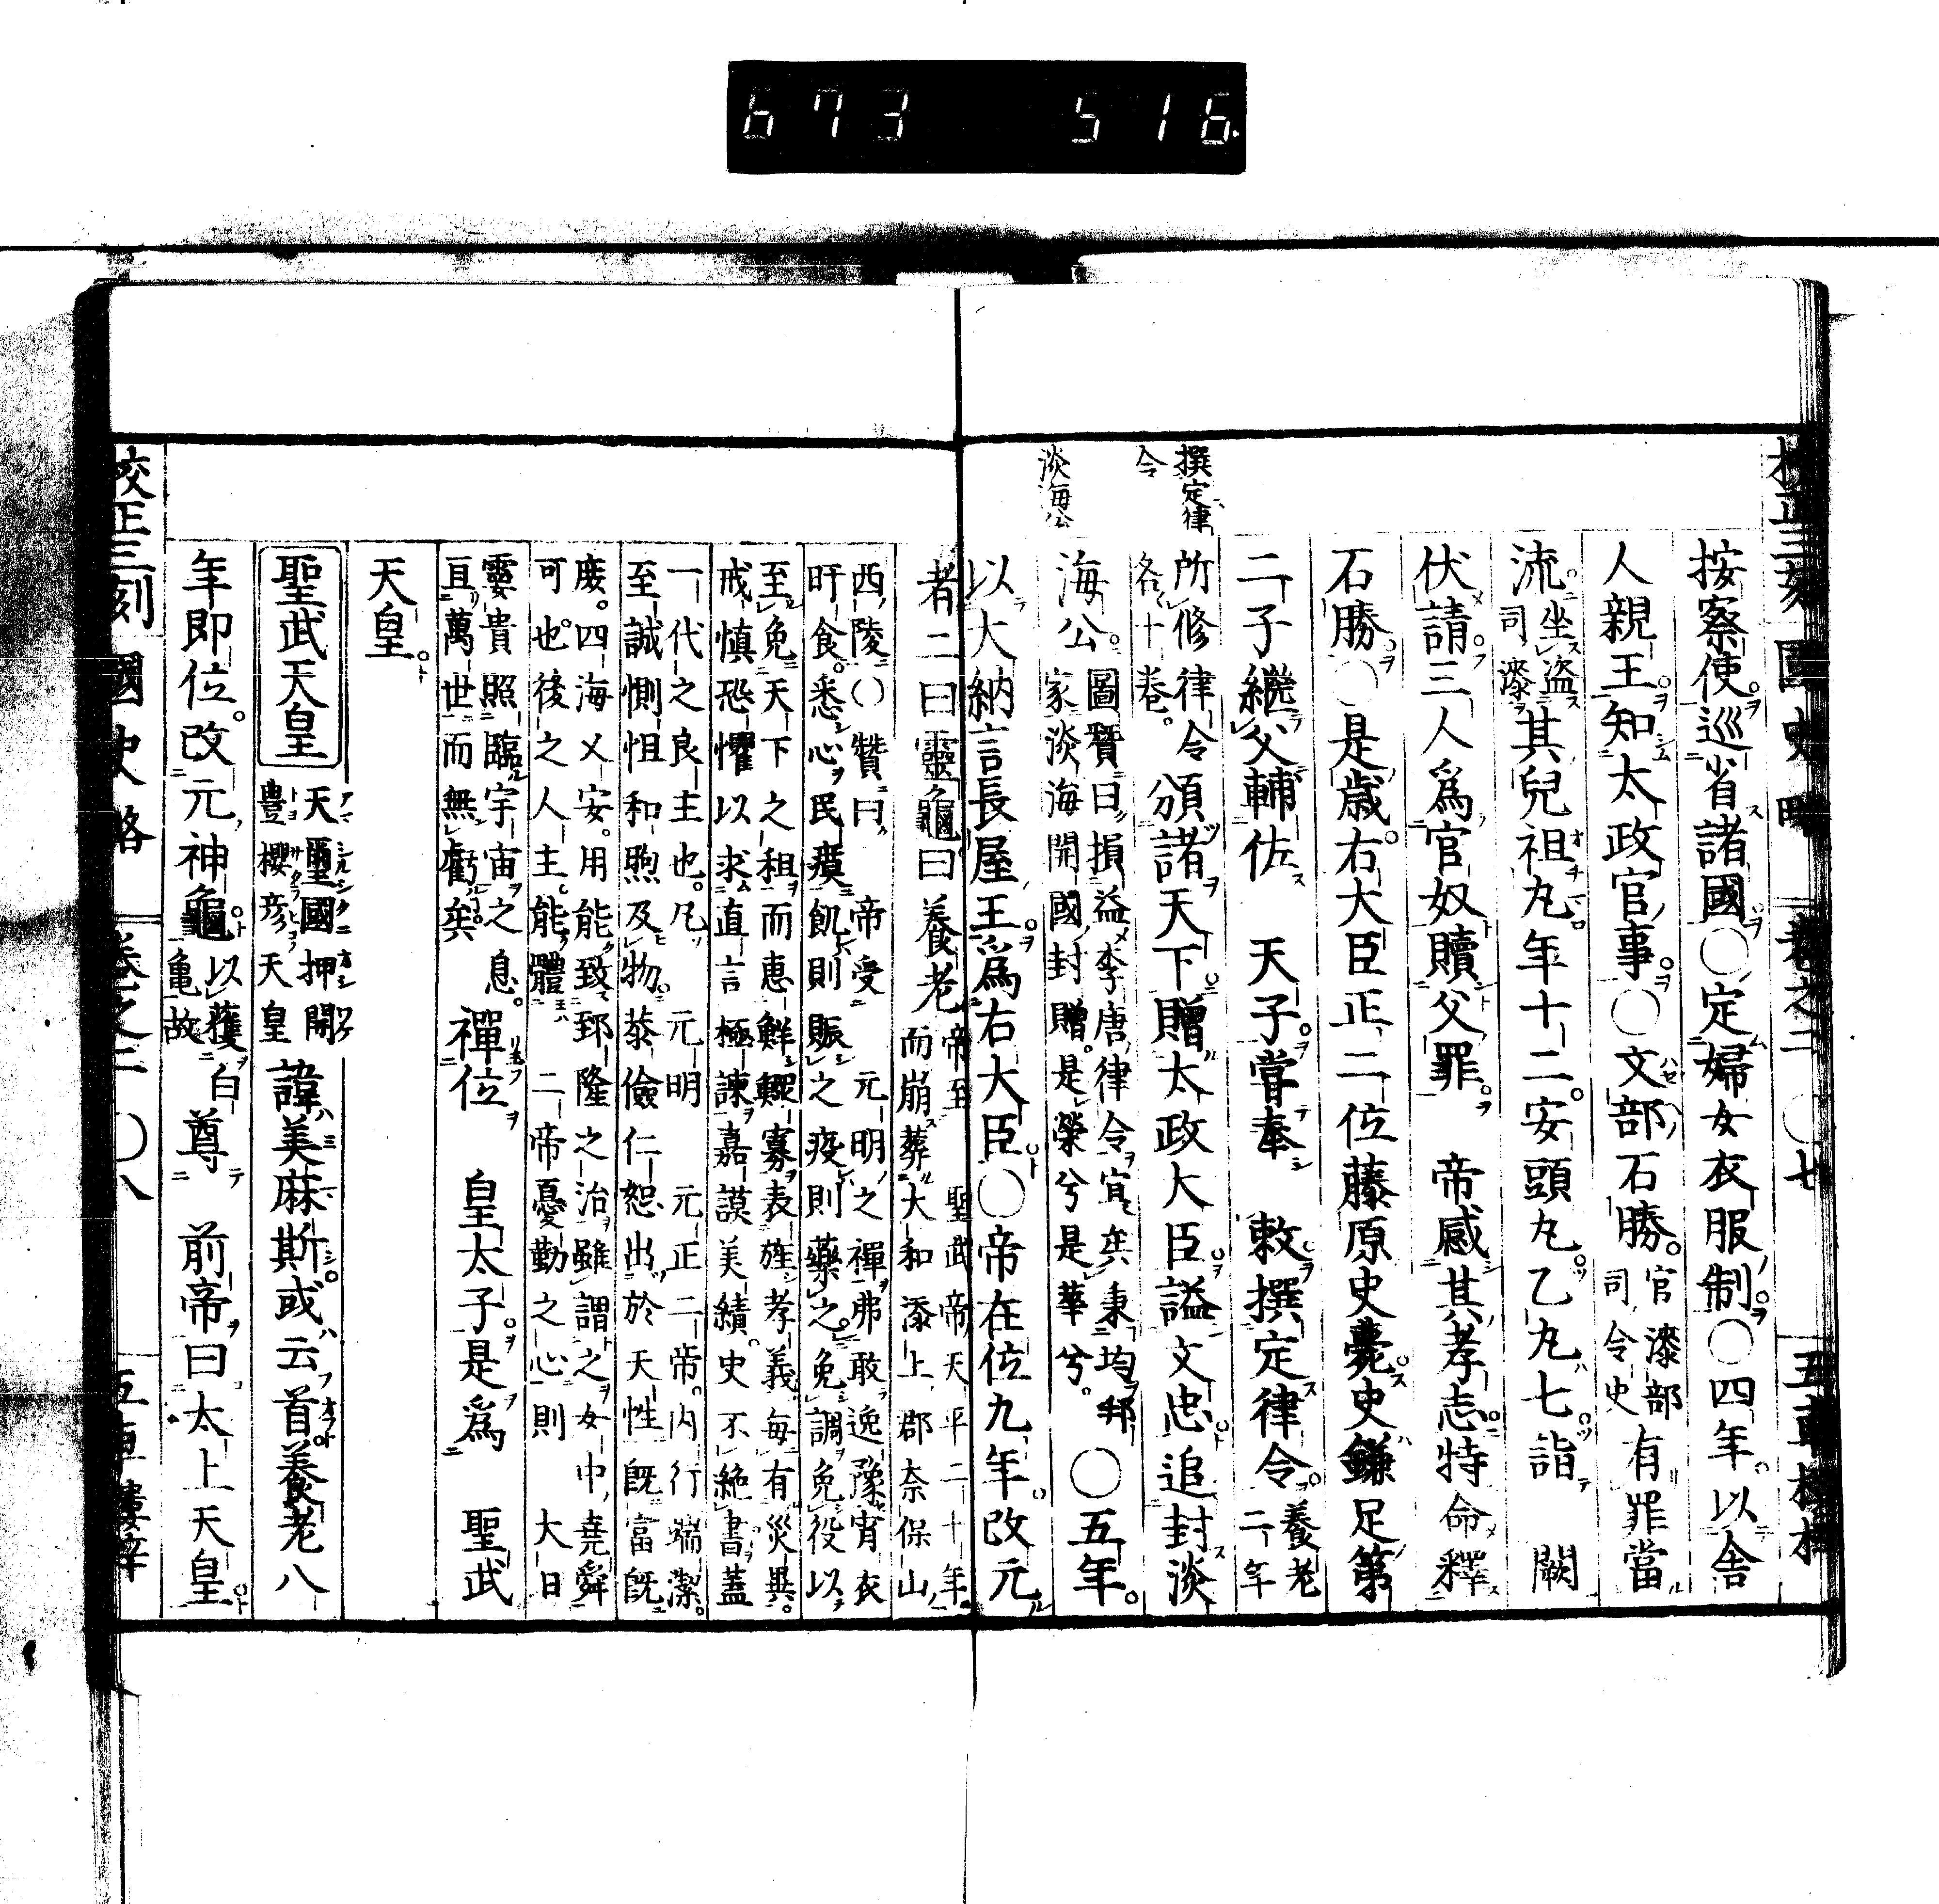 673 516
校正三刻 國史略 卷之二 〇七 五車樓梓
按察使巡省諸國〇定婦女衣服制〇四年以舍
人親王知太政官事〇文部石勝官漆部司令史有罪當
流坐盗司漆其兒祖丸年十二安頭丸乙丸七詣 闕
伏請三人爲官奴贖父罪 帝感其孝志特命釋
石勝〇是歳右大臣正二位藤原史薨史鎌足第
二子繼父輔佐 天子嘗奉 敕撰定律令養老二年
撰定律令
所修律令各十卷頒諸天下贈太政大臣謚文忠追封淡
淡海公
海公圖贊曰損益李唐律令宜矣秉均邦家淡海開國封贈是榮兮是華兮〇五年
以大納言長屋王爲右大臣〇帝在位九年改元
者二曰靈龜曰養老帝至 聖武帝天平二十年而崩葬大和添上郡奈保山
西陵〇贊曰 帝受 元明之禪弗敢逸豫宵衣
旰食悉心民瘼飢則賑之疫則藥之免調免役以
至免天下之租而惠鮮鰥寡表旌孝義每有災異
戒愼恐懼以求直言極諫嘉謨美績史不絶書蓋
一代之良主也凡 元明 元正二帝内行端潔
至誠惻怛和煦及物恭儉仁恕出於天性既富既
庶四海乂安用能致郅隆之治雖謂之女中堯舜
可也後之人主能體 二帝憂勤之心則 大日
靈貴照臨宇宙之息
亘萬世而無虧矣 禪位 皇太子是爲 聖武
天皇
聖武天皇 天璽國押開豊櫻彦天皇 諱美麻斯或云首養老八
年即位改元神龜以獲白亀故尊 前帝曰太上天皇
校正三刻 國史略 卷之二 〇八 五車樓梓